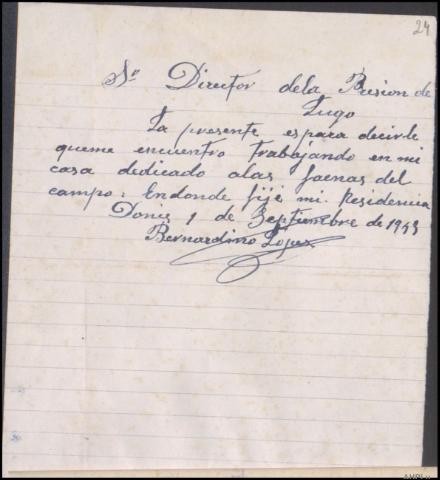 24
Sr Director dela Prision de
Lugo
La presente espara decirle
queme encuentro trabajando en mi
casa dedicado alas faenas del
campo. Endonde fijé mi Residencia
Donis 1 de Septiembre de 1943
Bernardino Lopez